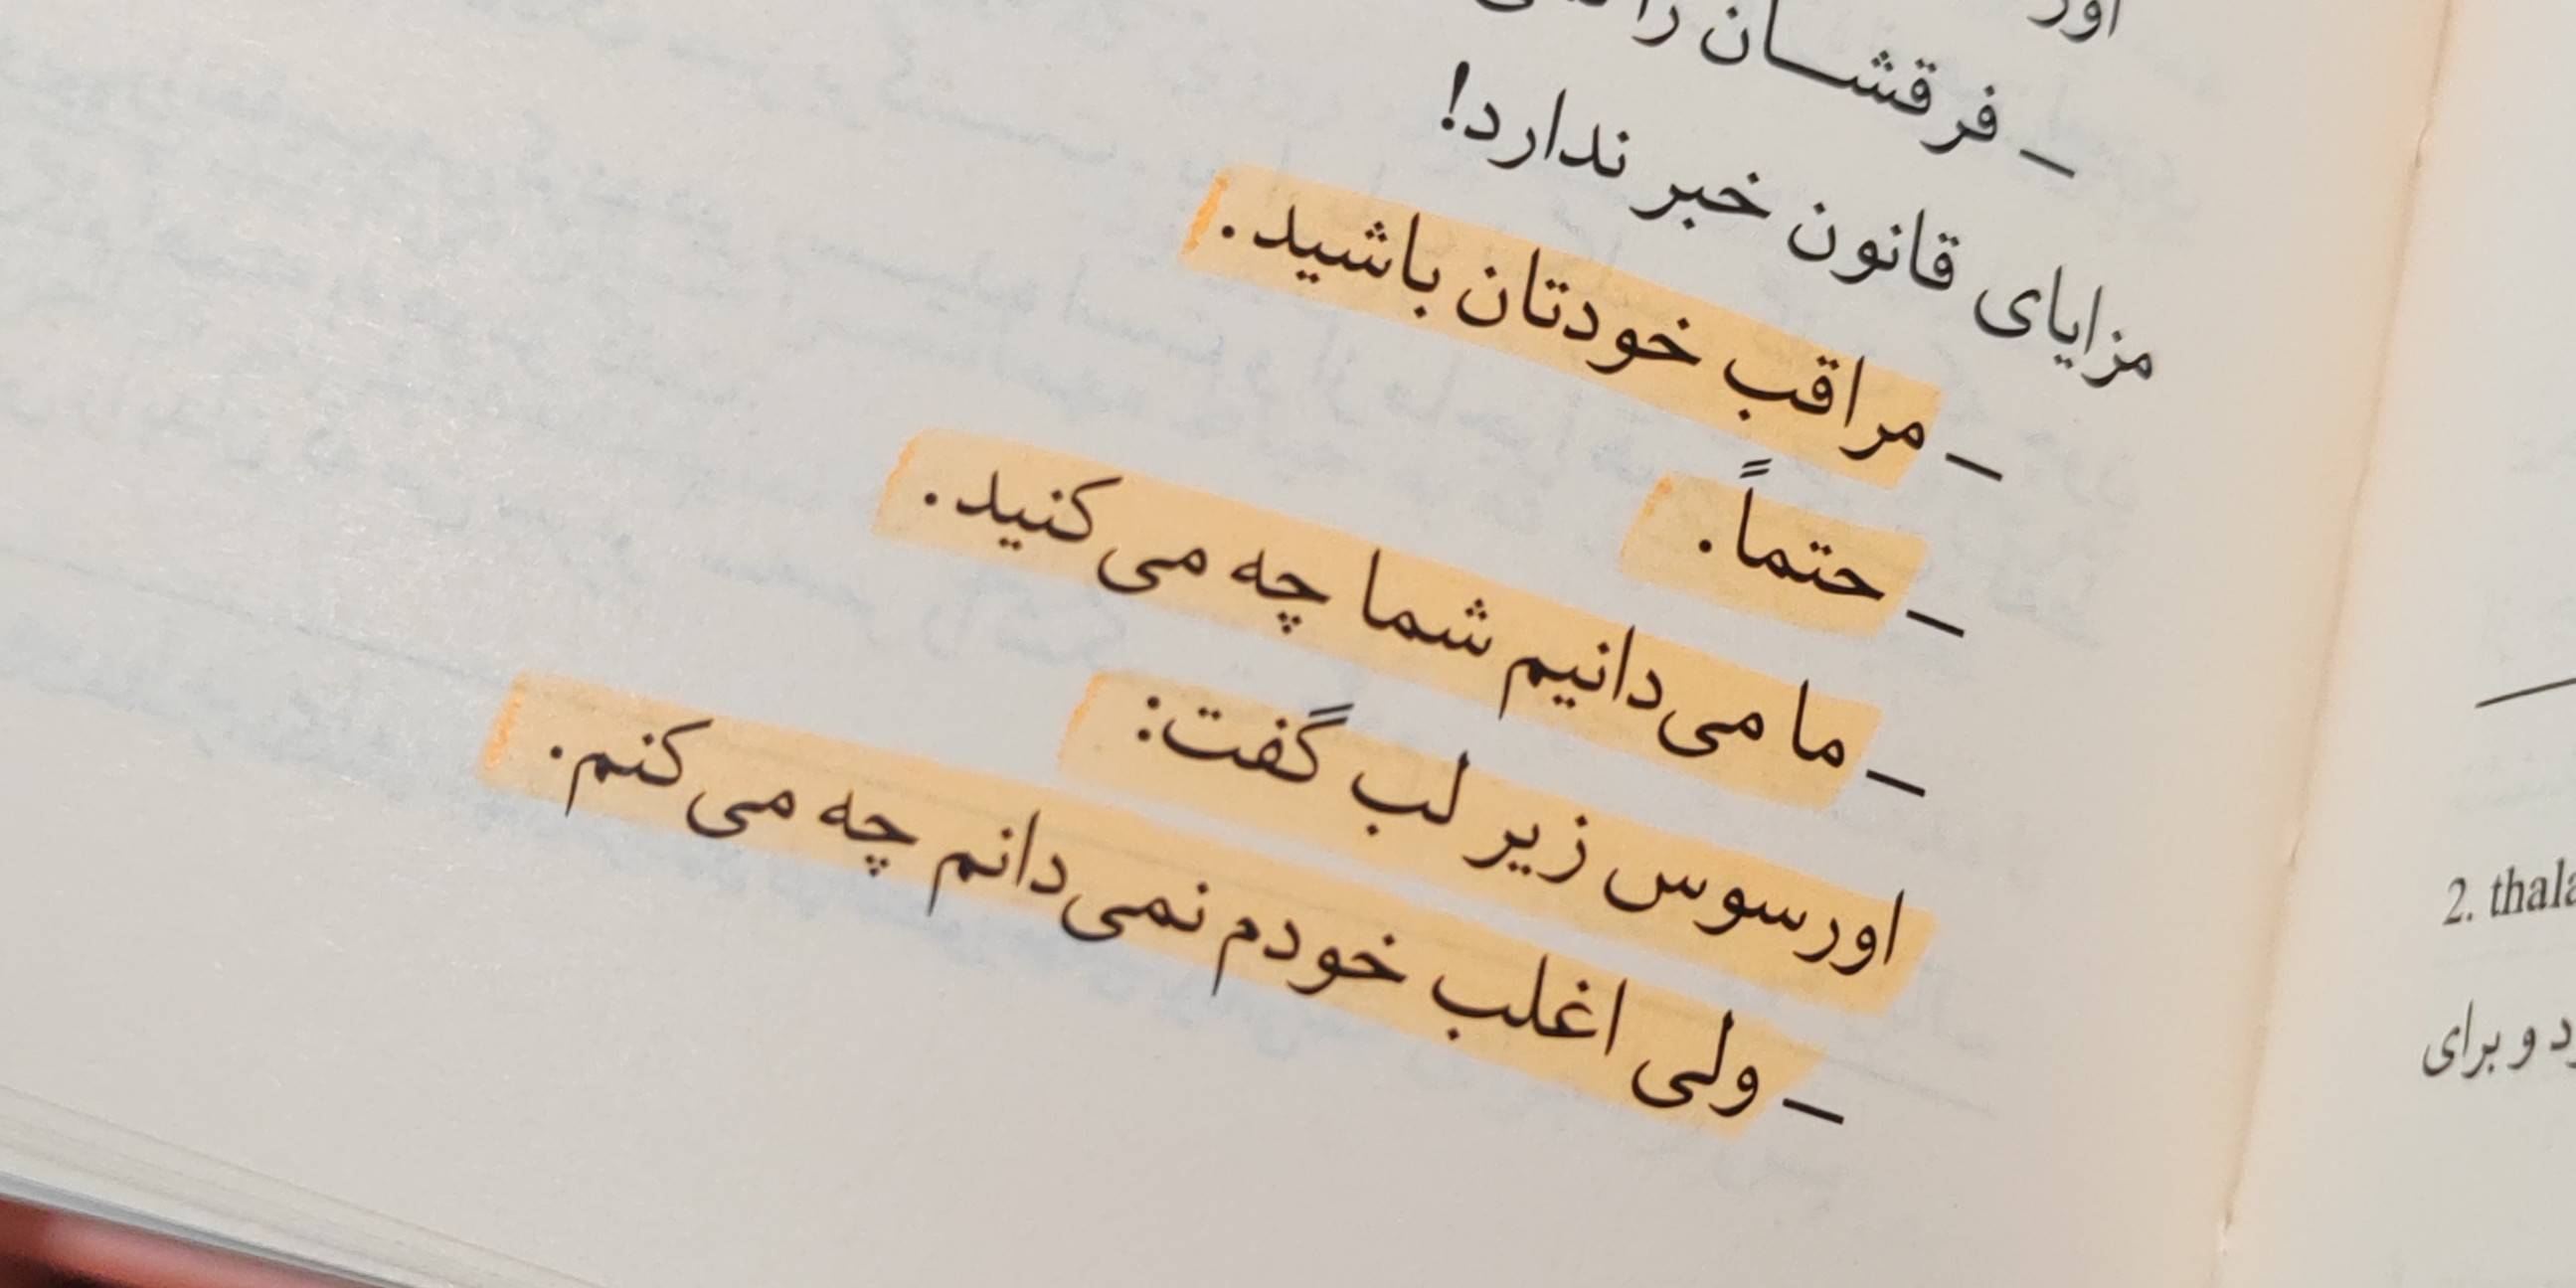 اور
– فرقشان را
مزایای قانون خبر ندارد!
– مراقب خودتان باشید.
– حتماً.
– ما می‌دانیم شما چه می‌کنید.
اورسوس زیر لب گفت:
– ولی اغلب خودم نمی‌دانم چه می‌کنم.
2. thala
د و برای